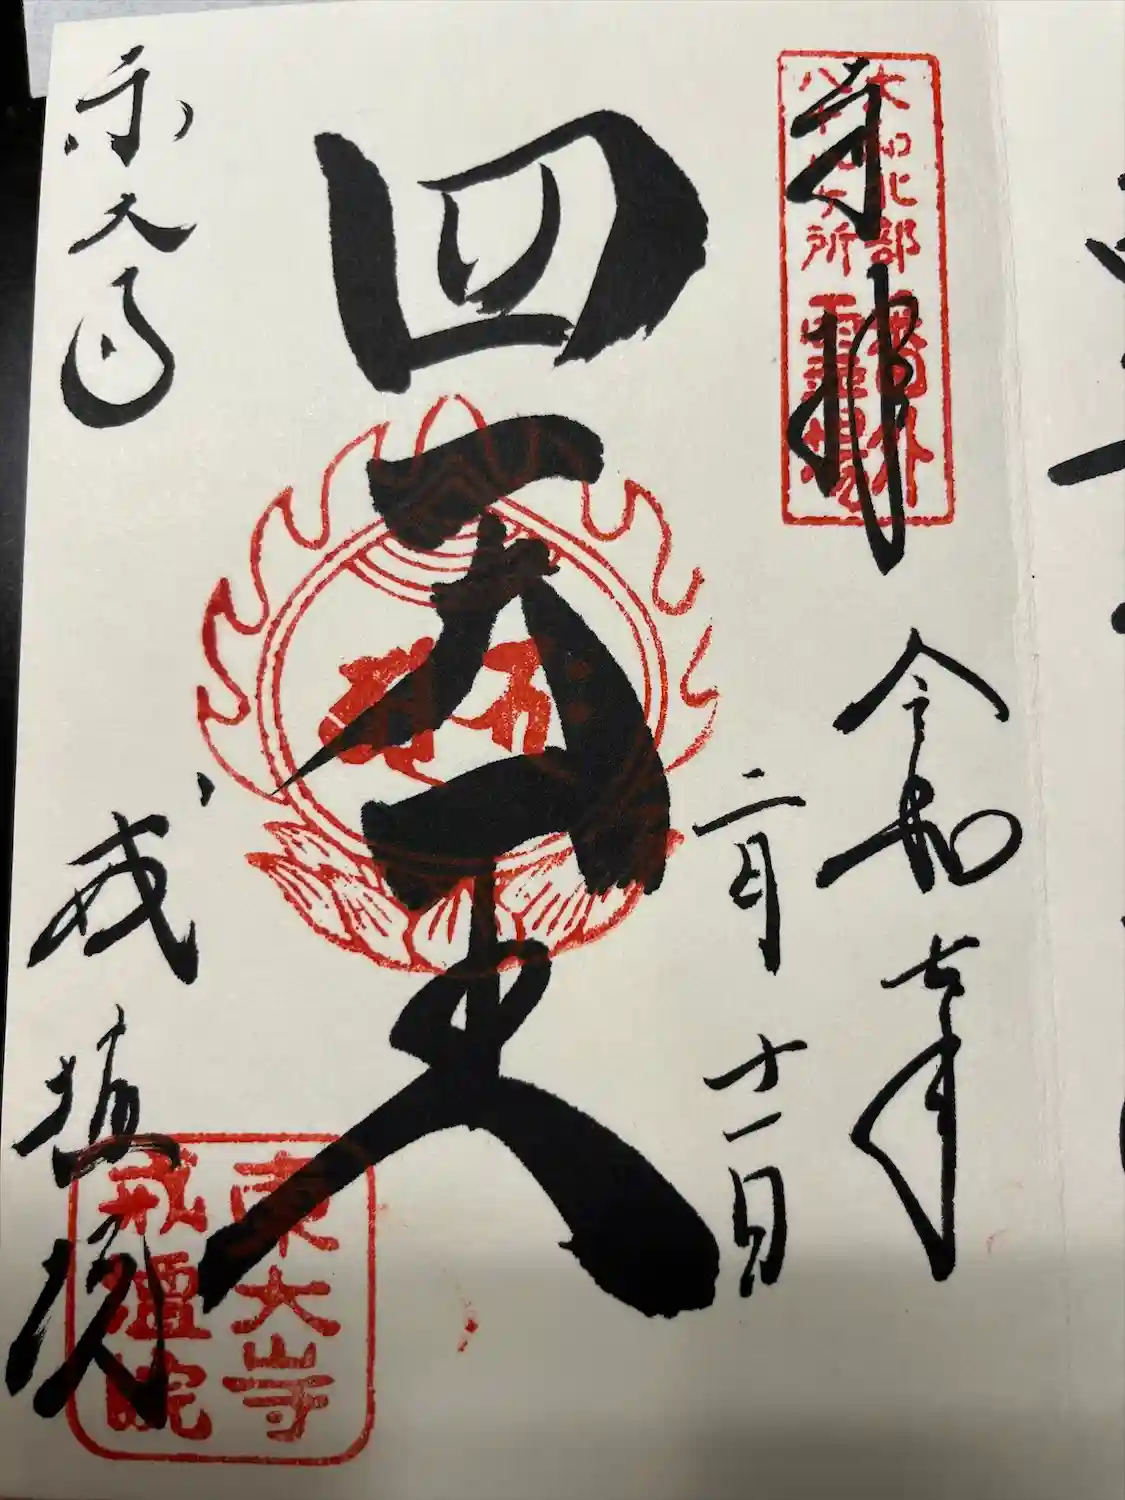 奉拝
令和七年
二月十一日
四天王
東大寺
戒壇院
大和北部
八十八ヶ所
番外
霊場
東大寺
戒壇院